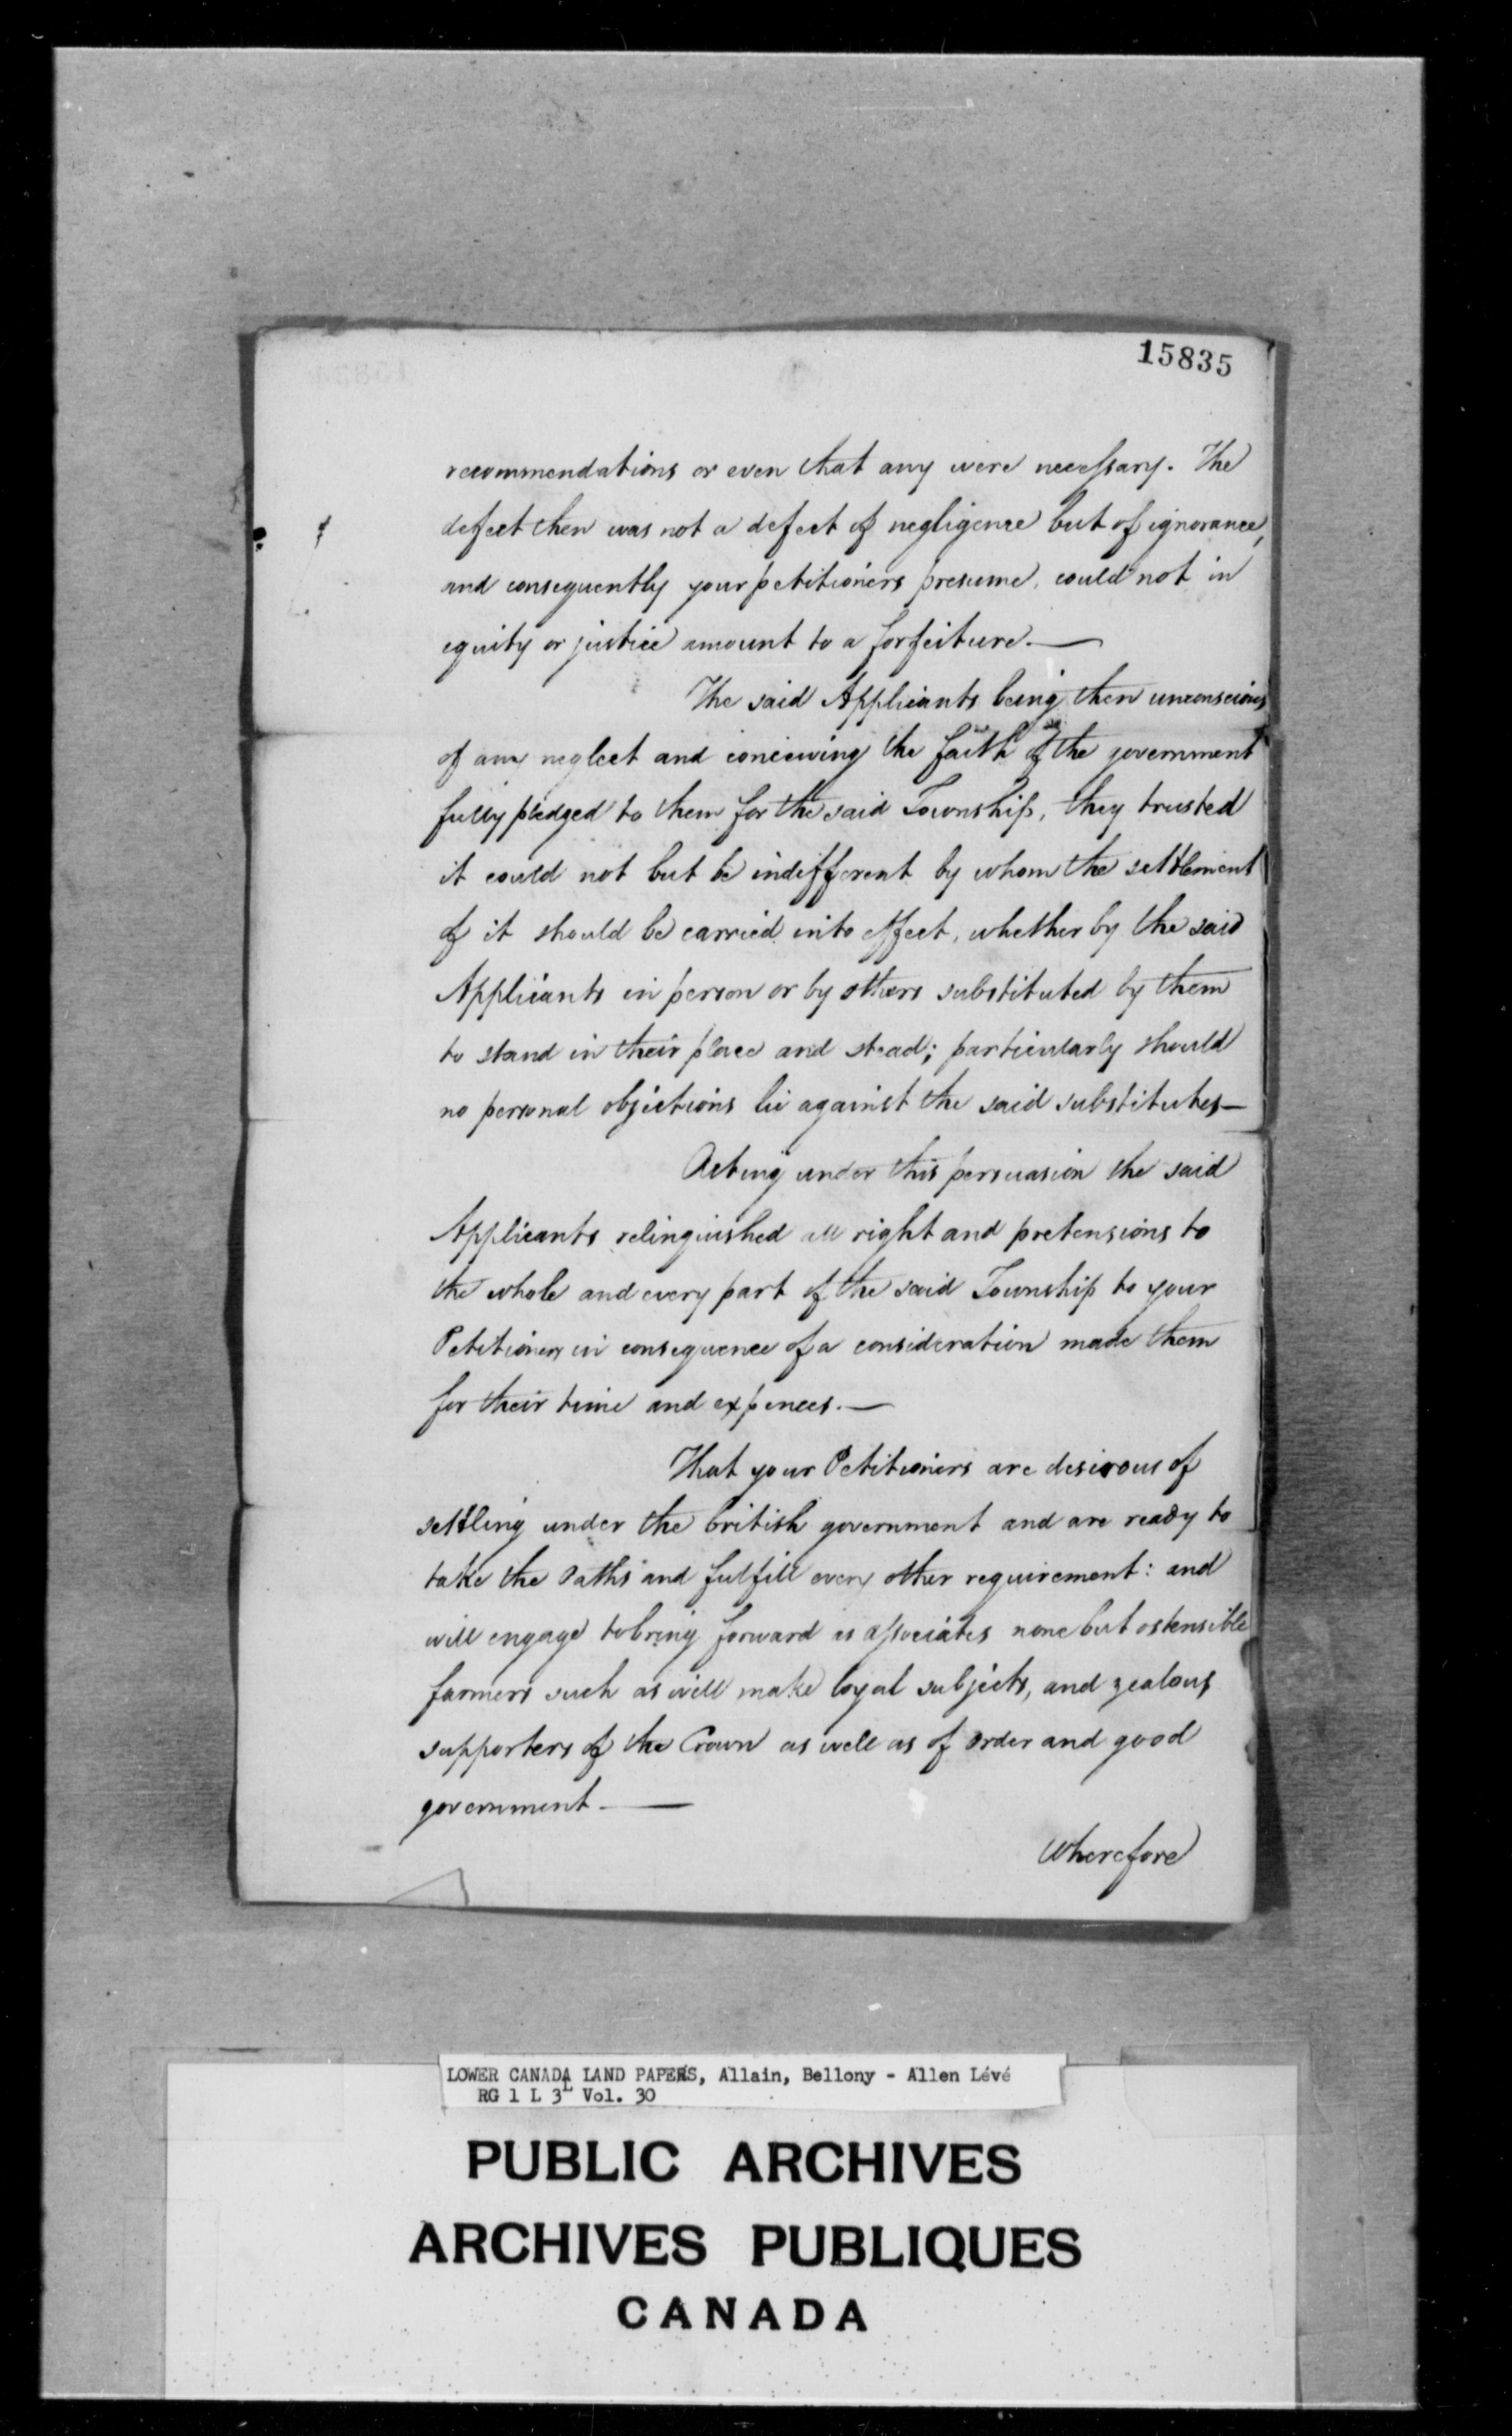 15835
recommendations or even that any were necessary. The
defect then was not a defect of negligence but of ignorance,
and consequently your petitioners presume, could not in
equity or justice amount to a forfeiture.—
The said Applicants being then unconscious
of any neglect and conceiving the faith of the government
fully pledged to them for the said Township, they trusted
it could not but be indifferent by whom the settlement
of it should be carried into effect, whether by the said
Applicants in person or by others substituted by them
to stand in their place and stead; particularly should
no personal objections lie against the said substitutes—
Acting under this persuasion the said
Applicants relinquished all right and pretensions to
the whole and every part of the said Township to your
Petitioners in consequence of a consideration made them
for their time and expences.—
That your Petitioners are desirous of
settling under the british government and are ready to
take the Oaths and fulfill every other requirement: and
will engage to bring forward as associates none but ostensible
farmers such as will make loyal subjects, and zealous
supporters of the Crown as well as of order and good
government.—
Wherefore
LOWER CANADA LAND PAPERS, Allain, Bellony - Allen Lévé
RG 1 L 3L Vol. 30
PUBLIC ARCHIVES
ARCHIVES PUBLIQUES
CANADA